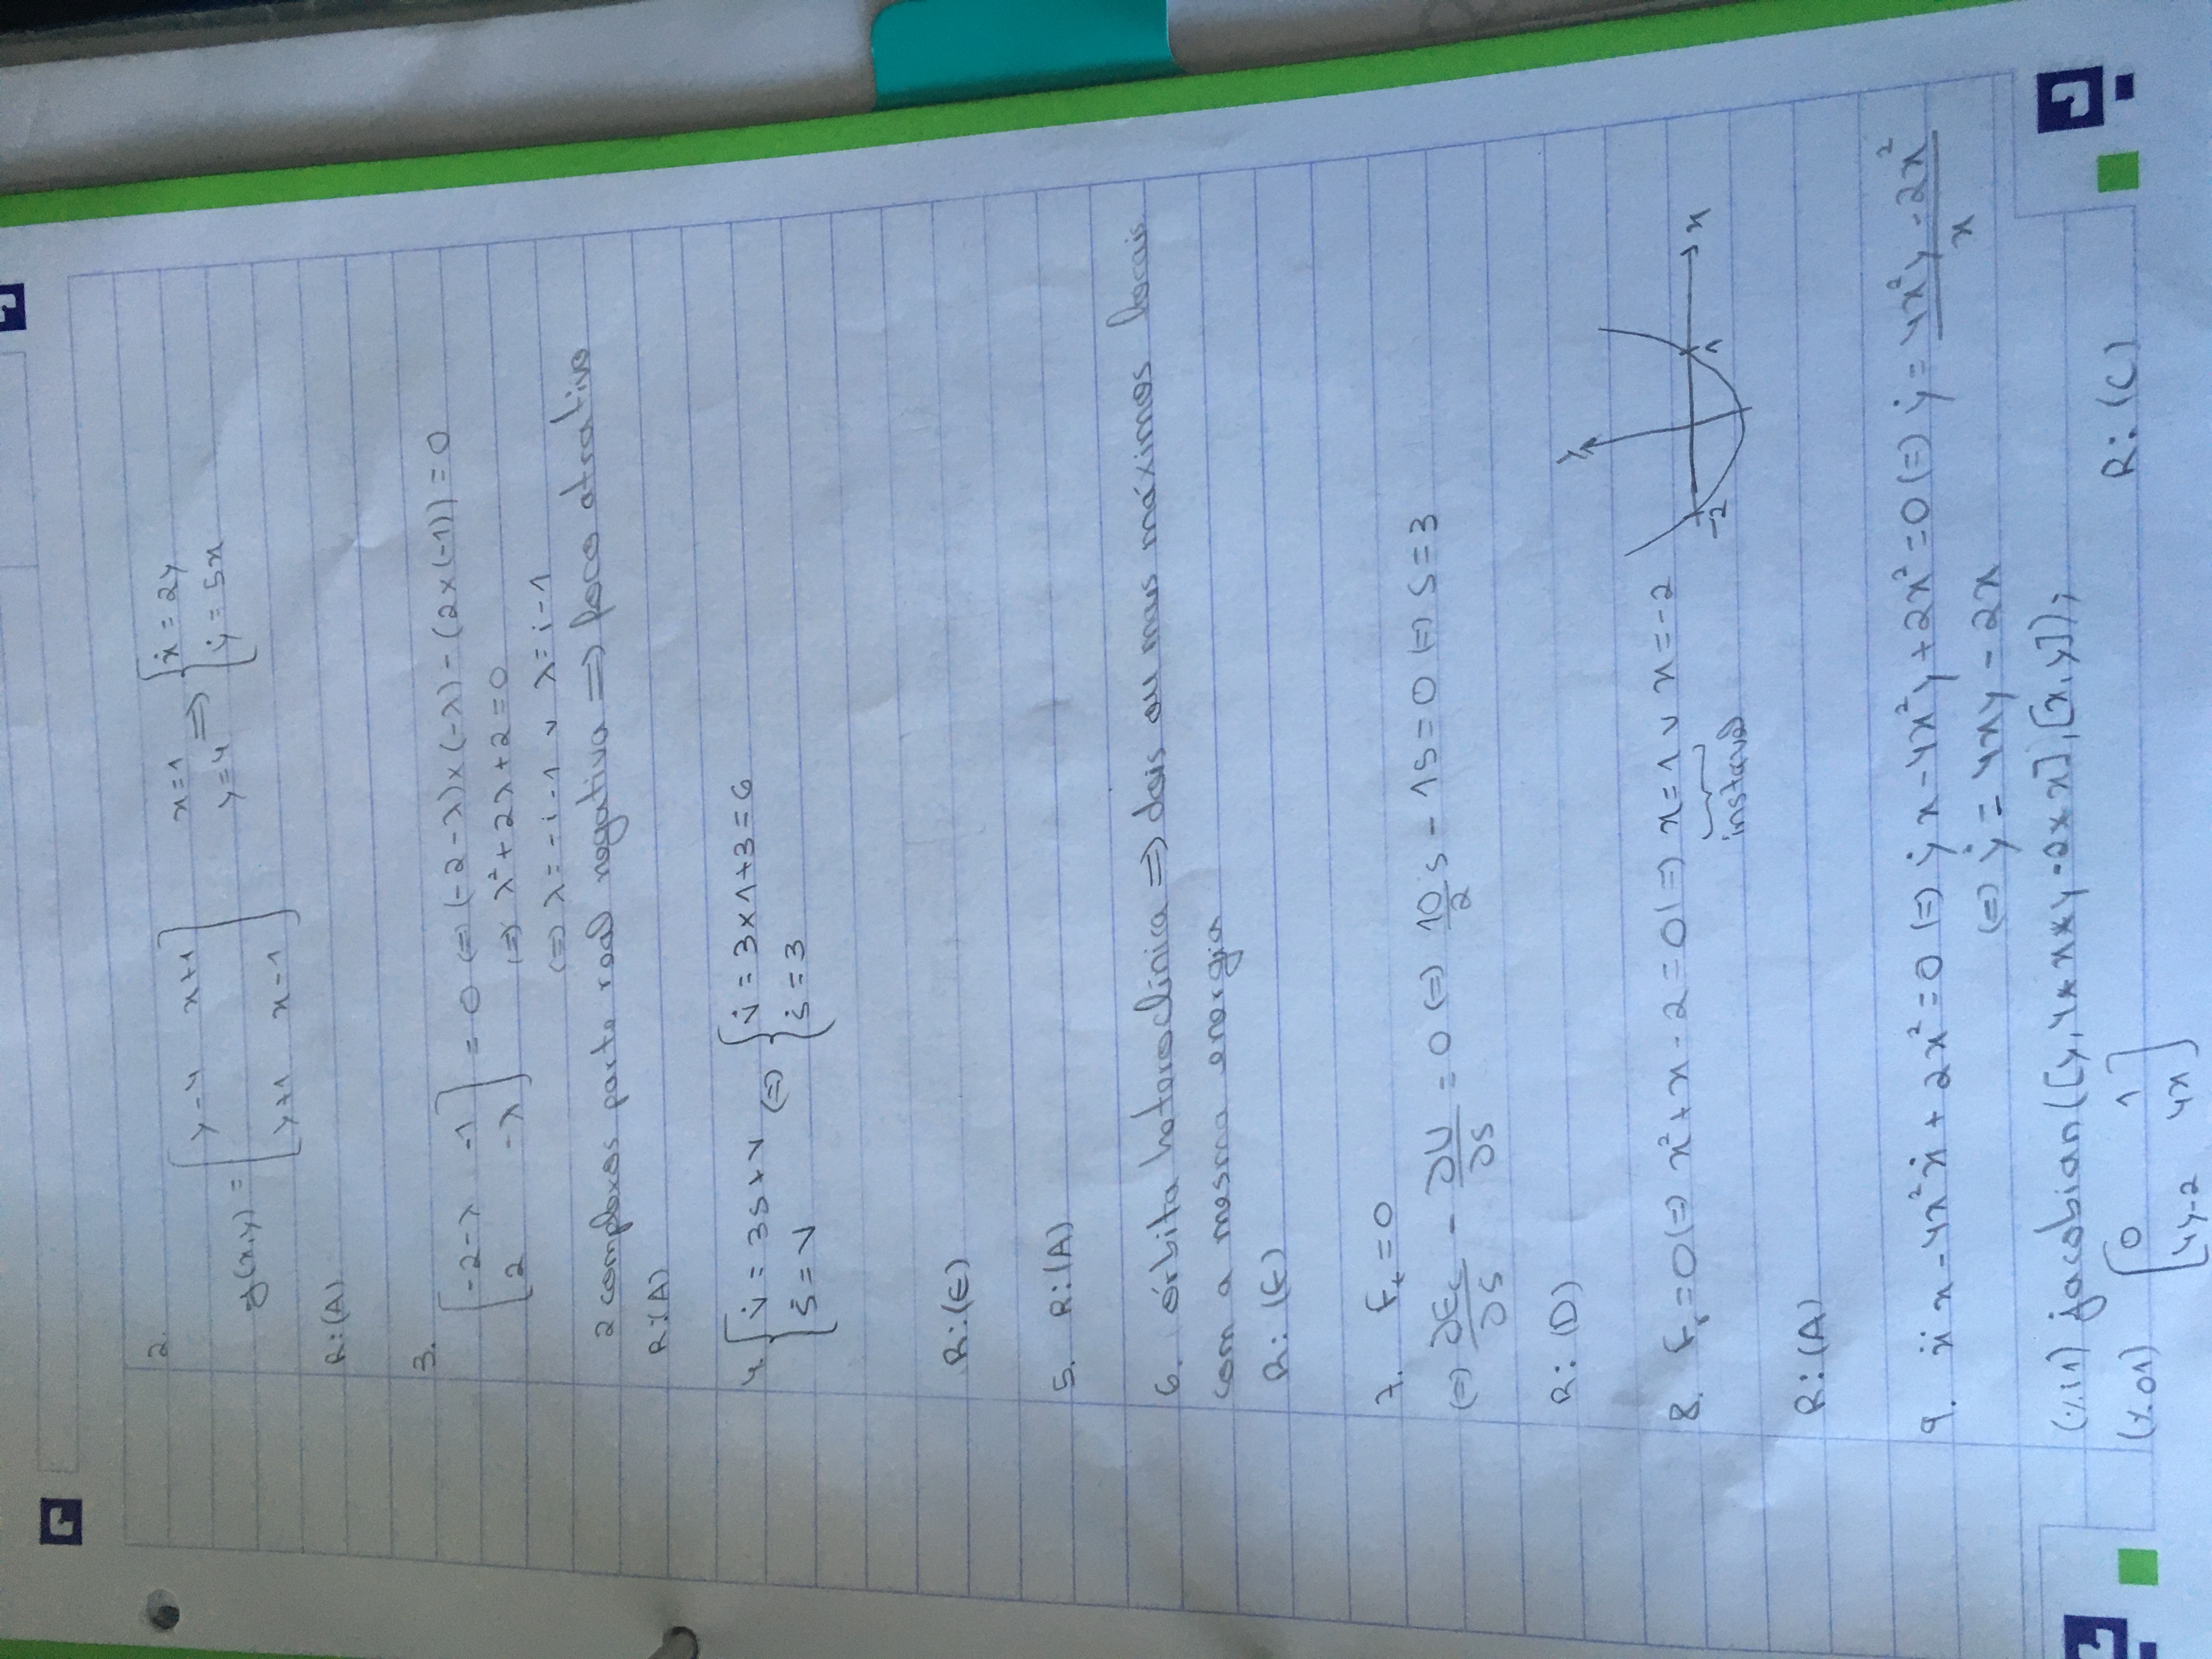 2.
J(x,y) = [ y-4 x+1 ; y+1 x-1 ] x=1 y=4 => { ẋ = 2y ; ẏ = 5x
R:(A)
3.
[ -2-λ -1 ; 2 -λ ] = 0 (=) (-2-λ)×(-λ) - (2×(-1)) = 0
(=) λ² + 2λ + 2 = 0
(=) λ = -i-1 v λ = i-1
2 complexos parte real negativa => foco atrativo
R:(A)
4. { v̇ = 3s+v ; ṡ = v (=) { v̇ = 3×1+3 = 6 ; ṡ = 3
R:(E)
5. R:(A)
6. órbita heteroclínica => dois ou mais máximos locais
com a mesma energia
R: (E)
7. Ft = 0
(=) ∂Ec/∂s - ∂U/∂s = 0 (=) 10/2 s - 15 = 0 (=) s = 3
R: (D)
8. Fr = 0 (=) x² + x - 2 = 0 (=) x = 1 v x = -2
instável
y
-2 1 x
R:(A)
9. ẍx - 4x²ẋ + 2x² = 0 (=) ẏx - 4x²y + 2x² = 0 (=) ẏ = (4x²y - 2x²)/x
(=) ẏ = 4xy - 2x
(%i1) jacobian([y, 4*x*y-2*x], [x,y]);
(%o1) [ 0 1 ; 4y-2 4x ] R: (C)